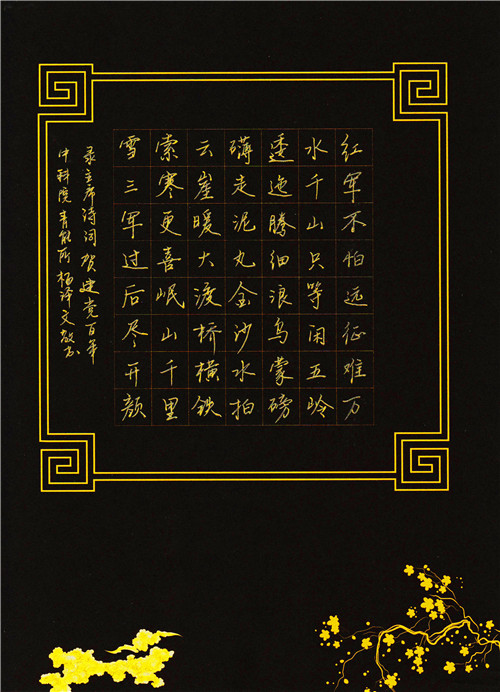 红军不怕远征难万
水千山只等闲五岭
逶迤腾细浪乌蒙磅
礴走泥丸金沙水拍
云崖暖大渡桥横铁
索寒更喜岷山千里
雪三军过后尽开颜
录主席诗词贺建党百年
中科院青能所 文敬书